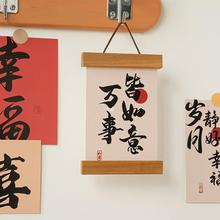 幸福
喜
万事
皆如意
岁月
静好
幸福